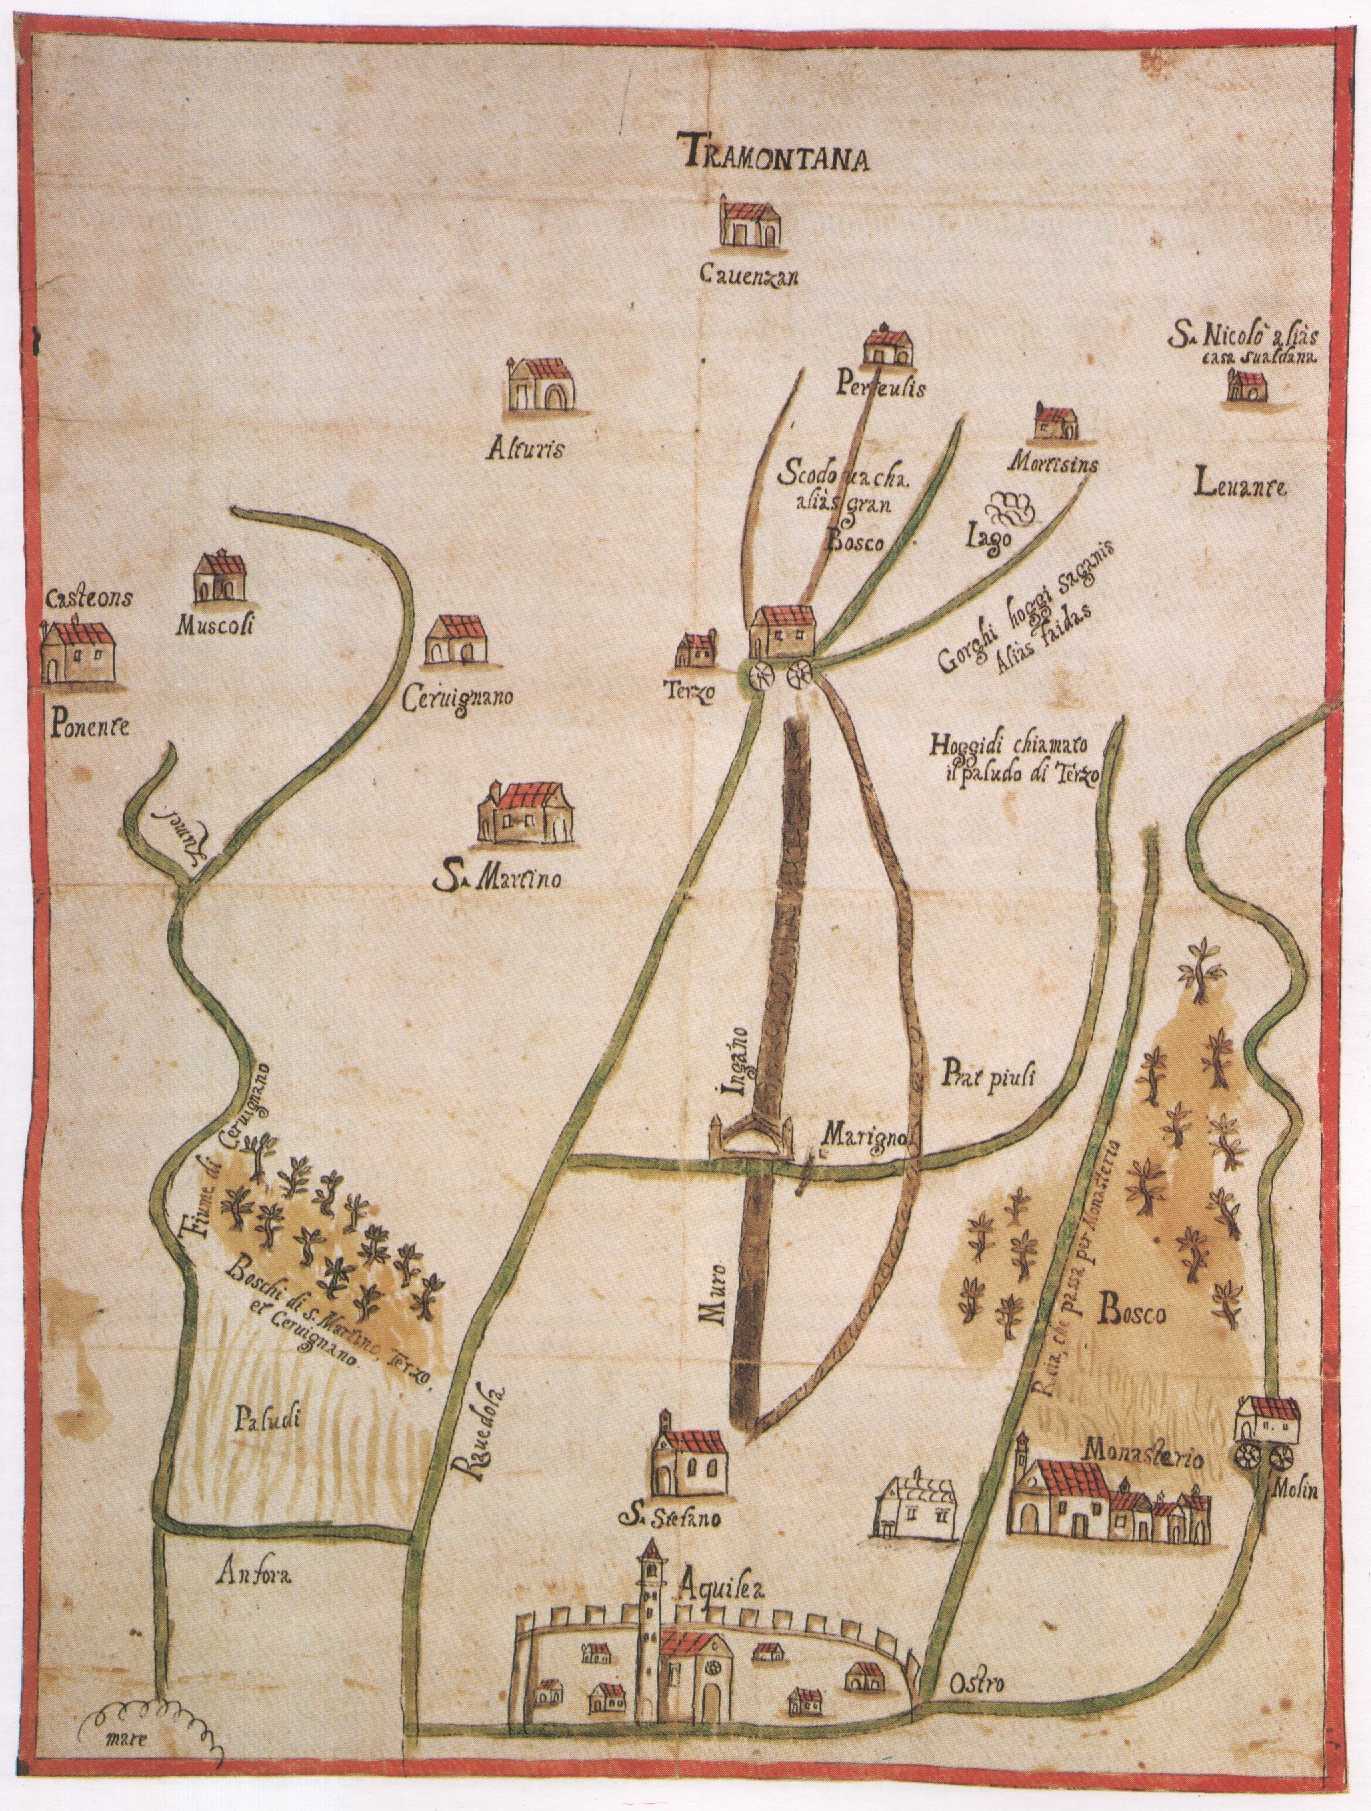 TRAMONTANA
Cauenzan
Sa Nicolò aliàs
casa sualdana
Perteulis
Alturis
Mortisins
Leuante
Scodouacha
aliàs gran
Bosco
Lago
Gorghi hoggi saganis
Aliàs faidas
Casteons
Muscoli
Ponente
Ceruignano
Terzo
Hoggidi chiamato
il paludo di Terzo
Sa Martino
Ingano
Prat piuli
Marigno
Fiume di Ceruignano
Boschi di S. Martino, Terzo,
et Ceruignano
Muro
che passa per Monasterio
Bosco
Paludi
Rauedola
Sa Stefano
Monasterio
Molin
Anfora
Aquilea
Ostro
mare